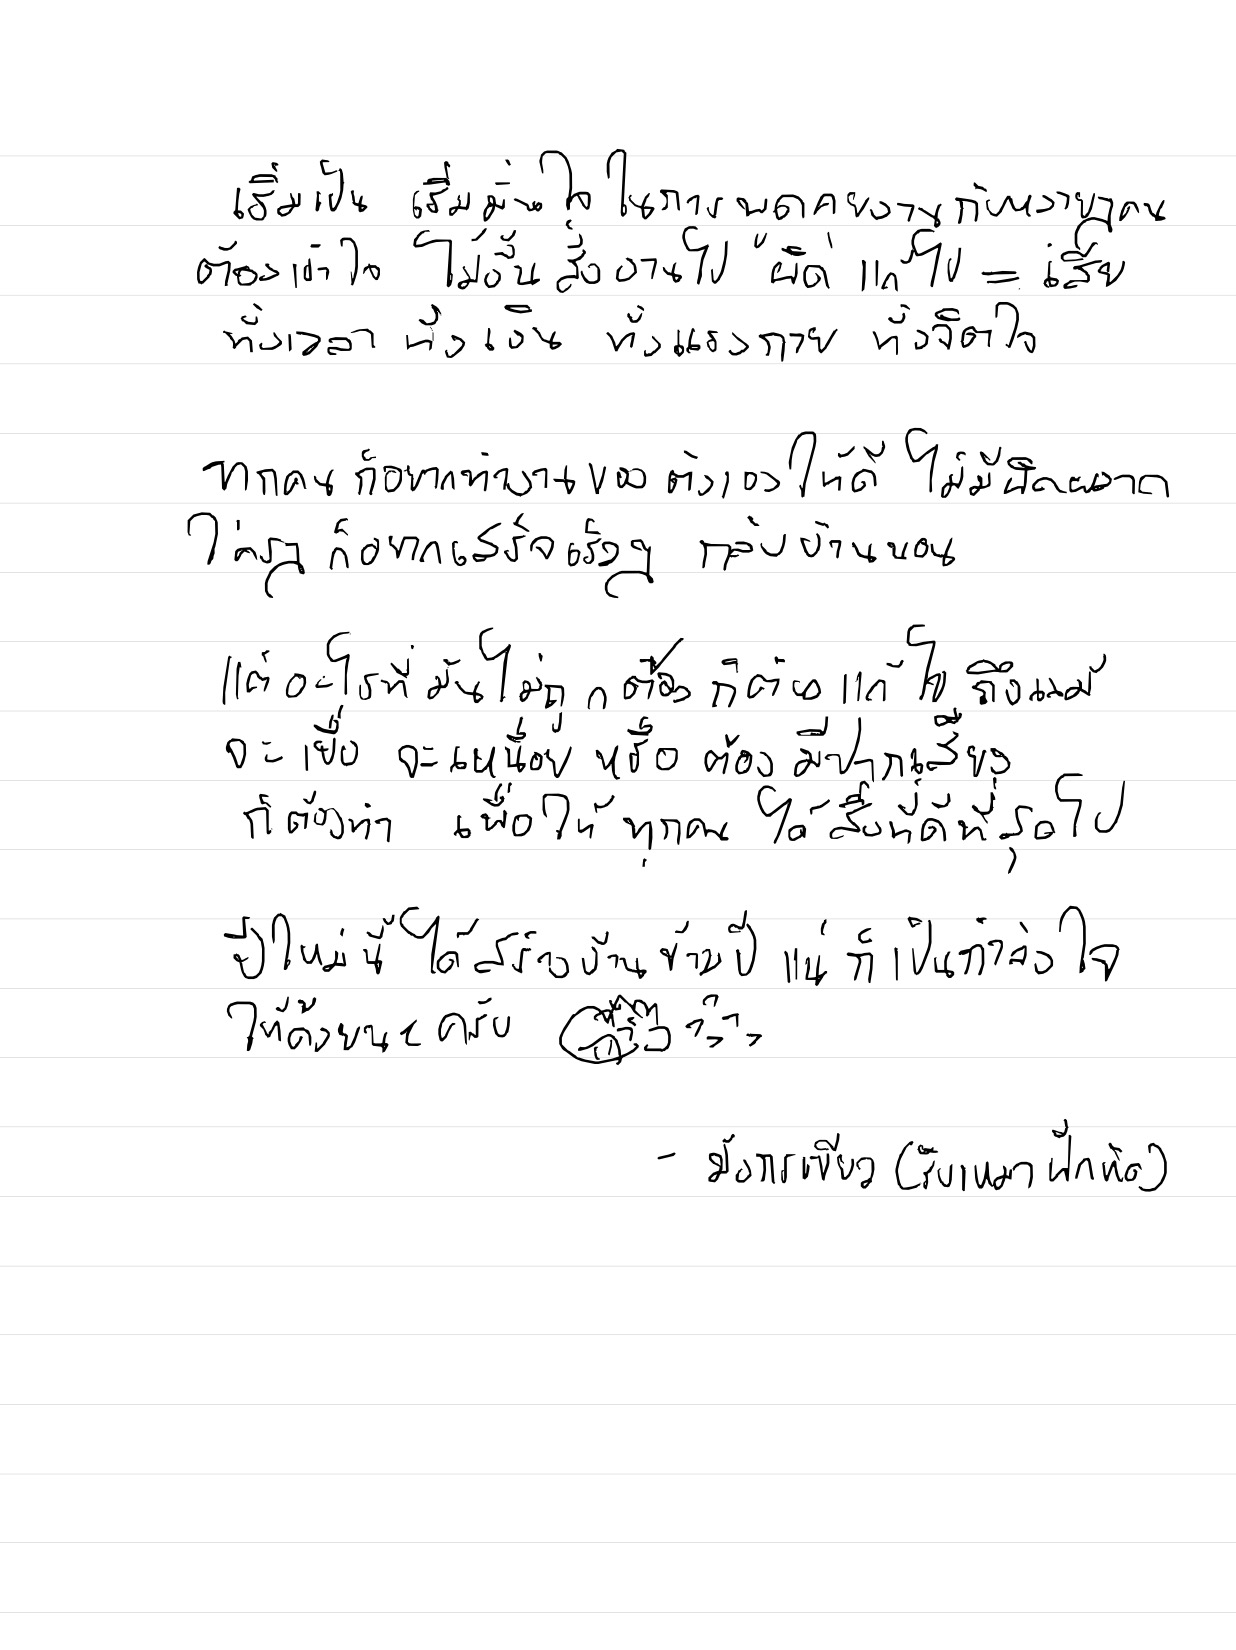 เริ่มเป็น เริ่มมั่นใจ ในการพูดคุยงานกับหลายๆคน
ต้องเข้าใจ ไม่งั้นสั่งงานไป "ผิด" แก้ไข = เสีย
ทั้งเวลา ทั้งเงิน ทั้งแรงกาย ทั้งจิตใจ
ทุกคนก็อยากทำงานของตัวเองให้ดี ไม่มีผิดพลาด
ใครๆ ก็อยากเสร็จเร็วๆ กลับบ้านนอน
แต่อะไรที่มันไม่ถูกต้อง ก็ต้องแก้ไข ถึงแม้
จะเบื่อ จะเหนื่อย หรือ ต้องมีปากเสียง
ก็ต้องทำ เพื่อให้ทุกคน ได้สิ่งที่ดีที่สุดไป
ปีใหม่นี้ ได้สร้างบ้านข้ามปี แน่ ก็เป็นกำลังใจ
ให้ด้วยนะครับ
- มังกรเขียว (รับเหมาฝึกหัด)